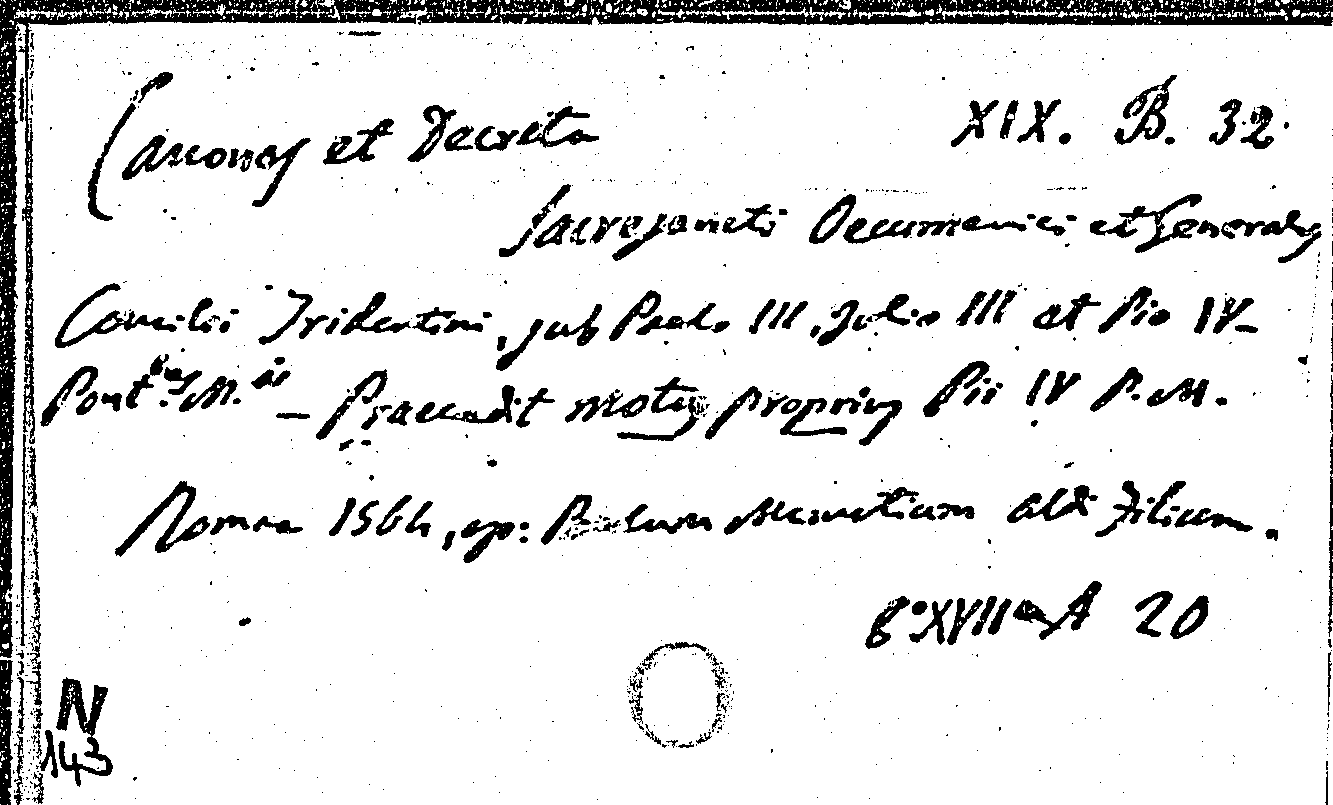 Canones et Decreta XIX. B. 32.
Sacrosancti Oecumenici et Generalis
Concilii Tridentini, sub Paulo III, Julio III et Pio IV
Pont.bus M.is – Praecedit motus proprius Pii IV P. M.
Romae 1564, ap: Paulum Manutium Aldi Filium.
8° XVII A 20
N
143